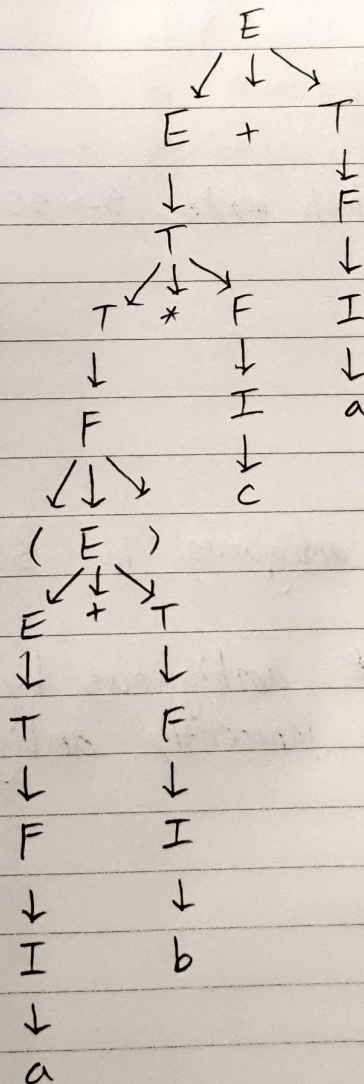 E
E + T
T F
T * F I
F I a
( E ) c
E + T
T F
F I
I b
a